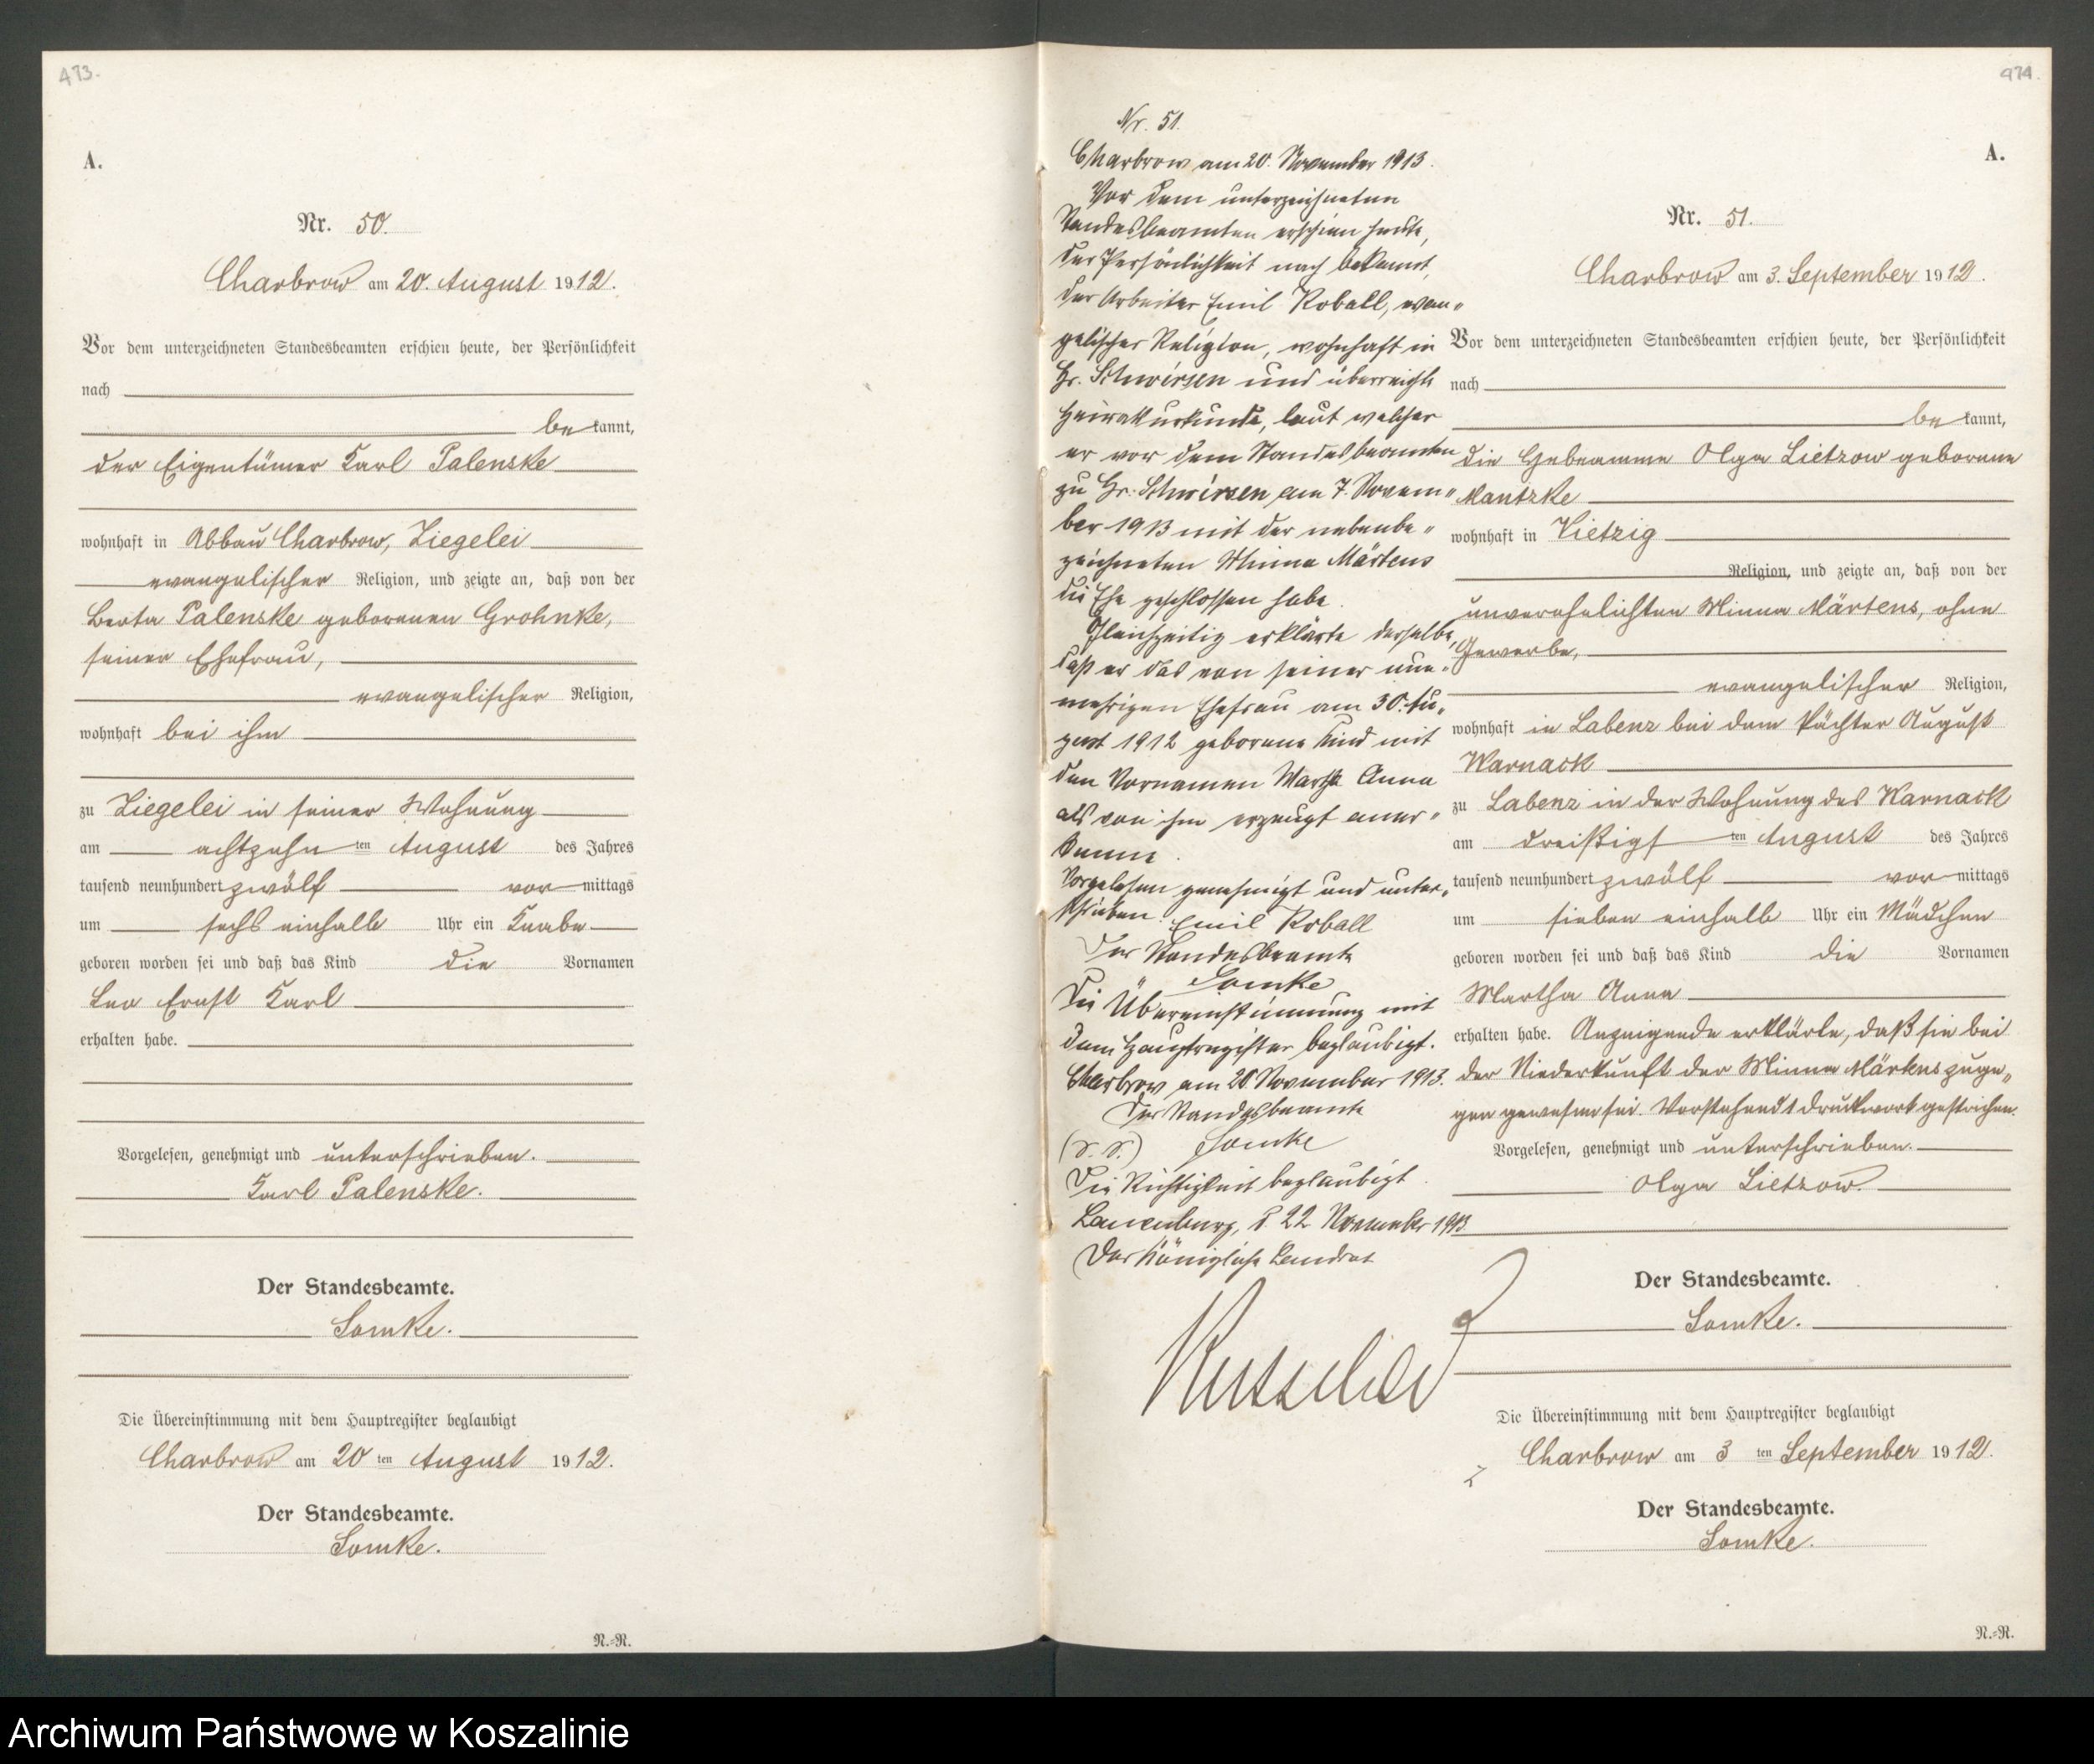 473.
A.
Nr. 50.
Charbrow am 20. August 1912.
Vor dem unterzeichneten Standesbeamten erschien heute, der Persönlichkeit
nach
be kannt,
der Eigentümer Karl Palenske
wohnhaft in Abbau Charbrow, Ziegelei
evangelischer Religion, und zeigte an, daß von der
Berta Palenske geborenen Grohnke,
seiner Ehefrau,
evangelischer Religion,
wohnhaft bei ihm
zu Ziegelei in seiner Wohnung
am achtzehn ten August des Jahres
tausend neunhundert zwölf vor mittags
um sechs einhalb Uhr ein Knabe
geboren worden sei und daß das Kind die Vornamen
Leo Ernst Karl
erhalten habe.
Vorgelesen, genehmigt und unterschrieben.
Karl Palenske.
Der Standesbeamte.
Lomke.
Die Übereinstimmung mit dem Hauptregister beglaubigt
Charbrow am 20 ten August 1912.
Der Standesbeamte.
Lomke.
N.=R.
474.
A.
Nr. 51.
Charbrow am 20. November 1913.
Vor dem unterzeichneten
Standesbeamten erschien heute,
der Persönlichkeit nach bekannt,
der Arbeiter Emil Koball, evan„
gelischer Religion, wohnhaft in
Gr. Schwirsen und überreichte
Heiratsurkunde, laut welcher
er vor dem Standesbeamten
zu Gr. Schwirsen am 7. Novem„
ber 1913 mit der nebenbe„
zeichneten Minna Märtens
die Ehe geschlossen habe.
Gleichzeitig erklärte derselbe,
daß er das von seiner nun„
mehrigen Ehefrau am 30. Au„
gust 1912 geborene Kind mit
den Vornamen Martha Anna
als von ihm erzeugt aner„
kenne.
Vorgelesen genehmigt und unter„
schrieben. Emil Koball
Der Standesbeamte
Lomke
Die Übereinstimmung mit
dem Hauptregister beglaubigt.
Charbrow am 20. November 1913.
Der Standesbeamte
(L. S.) Lomke
Die Richtigkeit beglaubigt
Lauenburg, d. 22 November 1913.
Der Königliche Landrat
Nr. 51.
Charbrow am 3. September 1912.
Vor dem unterzeichneten Standesbeamten erschien heute, der Persönlichkeit
nach
be kannt,
die Hebeamme Olga Lietzow geborene
Mantzke
wohnhaft in Vietzig
Religion, und zeigte an, daß von der
unverehelichten Minna Märtens, ohne
Gewerbe,
evangelischer Religion,
wohnhaft in Labenz bei dem Pächter August
Warnack
zu Labenz in der Wohnung des Warnack
am dreißigs ten August des Jahres
tausend neunhundert zwölf vor mittags
um sieben einhalb Uhr ein Mädchen
geboren worden sei und daß das Kind die Vornamen
Martha Anna
erhalten habe. Anzeigende erklärte, daß sie bei
der Niederkunft der Minna Märtens zuge„
gen gewesen sei. Vorstehend 1 Druckwort gestrichen.
Vorgelesen, genehmigt und unterschrieben.
Olga Lietzow.
Der Standesbeamte.
Lomke.
Die Übereinstimmung mit dem Hauptregister beglaubigt
Charbrow am 3 ten September 1912.
Der Standesbeamte.
Lomke.
N.=R.
Archiwum Państwowe w Koszalinie